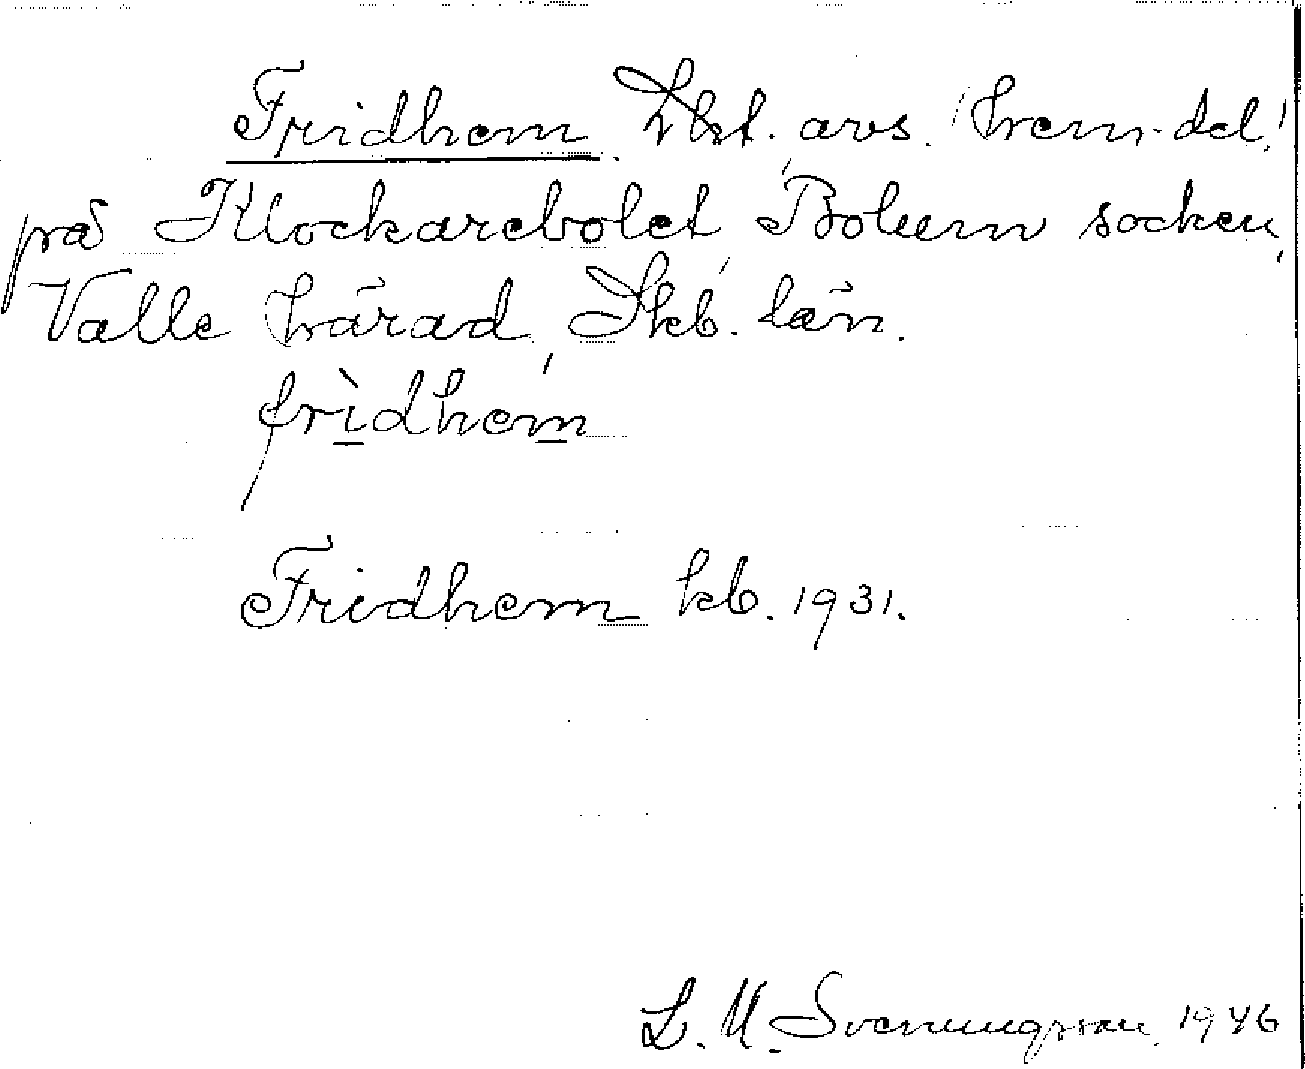 Fridhem. Lht. avs. (hem.del)
på Klockarebolet, Bolum socken,
Valle härad, Skb. län.
frìdhem
Fridhem kb. 1931.
L. M. Svenungsson 1946